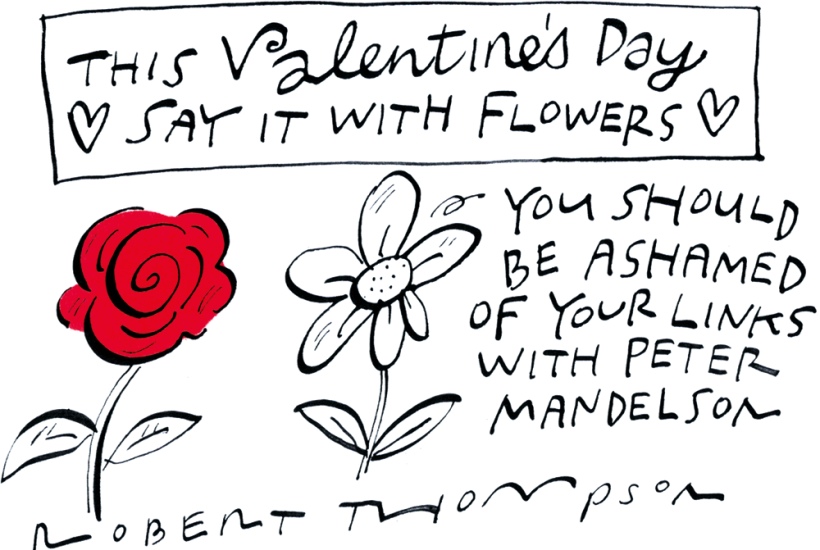 THIS Valentine's Day
♡ SAY IT WITH FLOWERS ♡
YOU SHOULD
BE ASHAMED
OF YOUR LINKS
WITH PETER
MANDELSON
ROBERT THOMPSON